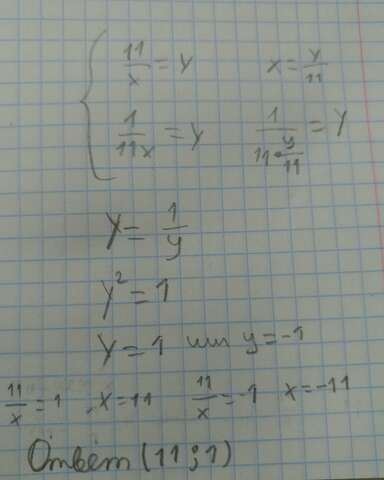 { 11/x = y    x = y/11
1/11x = y    1/(11·y/11) = y
y = 1/y
y² = 1
y = 1 или y = -1
11/x = 1, x = 11    11/x = -1    x = -11
Ответ (11; 1)